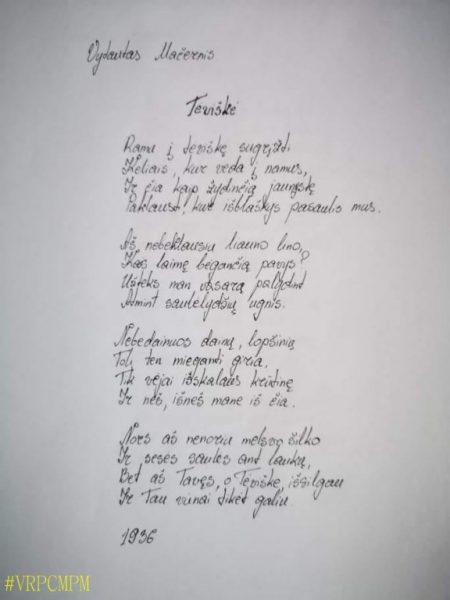 Vytautas Mačernis
Tėviškė
Ramu į tėviškę sugrįžti
Keliais, kur veda į namus,
Ir čia kaip žydinčią jaunystę
Paklausti, kur išblaškys pasaulis mus.
Aš nebeklausiu liauno lino,
Kas laimę bėgančią pavys?
Užteks man vasarą palydint
Atmint saulėlydžių ugnis.
Nebedainuos dainų, lopšinių
Toli ten mieganti giria,
Tik vėjai išskalaus krūtinę
Ir neš, išneš mane iš čia.
Nors aš nenoriu melsvo šilko
Ir sesės saulės ant laukų,
Bet aš Tavęs, o Tėviške, išsilgau
Ir Tau vienai tikėt galiu.
1936
#VRPCMPM